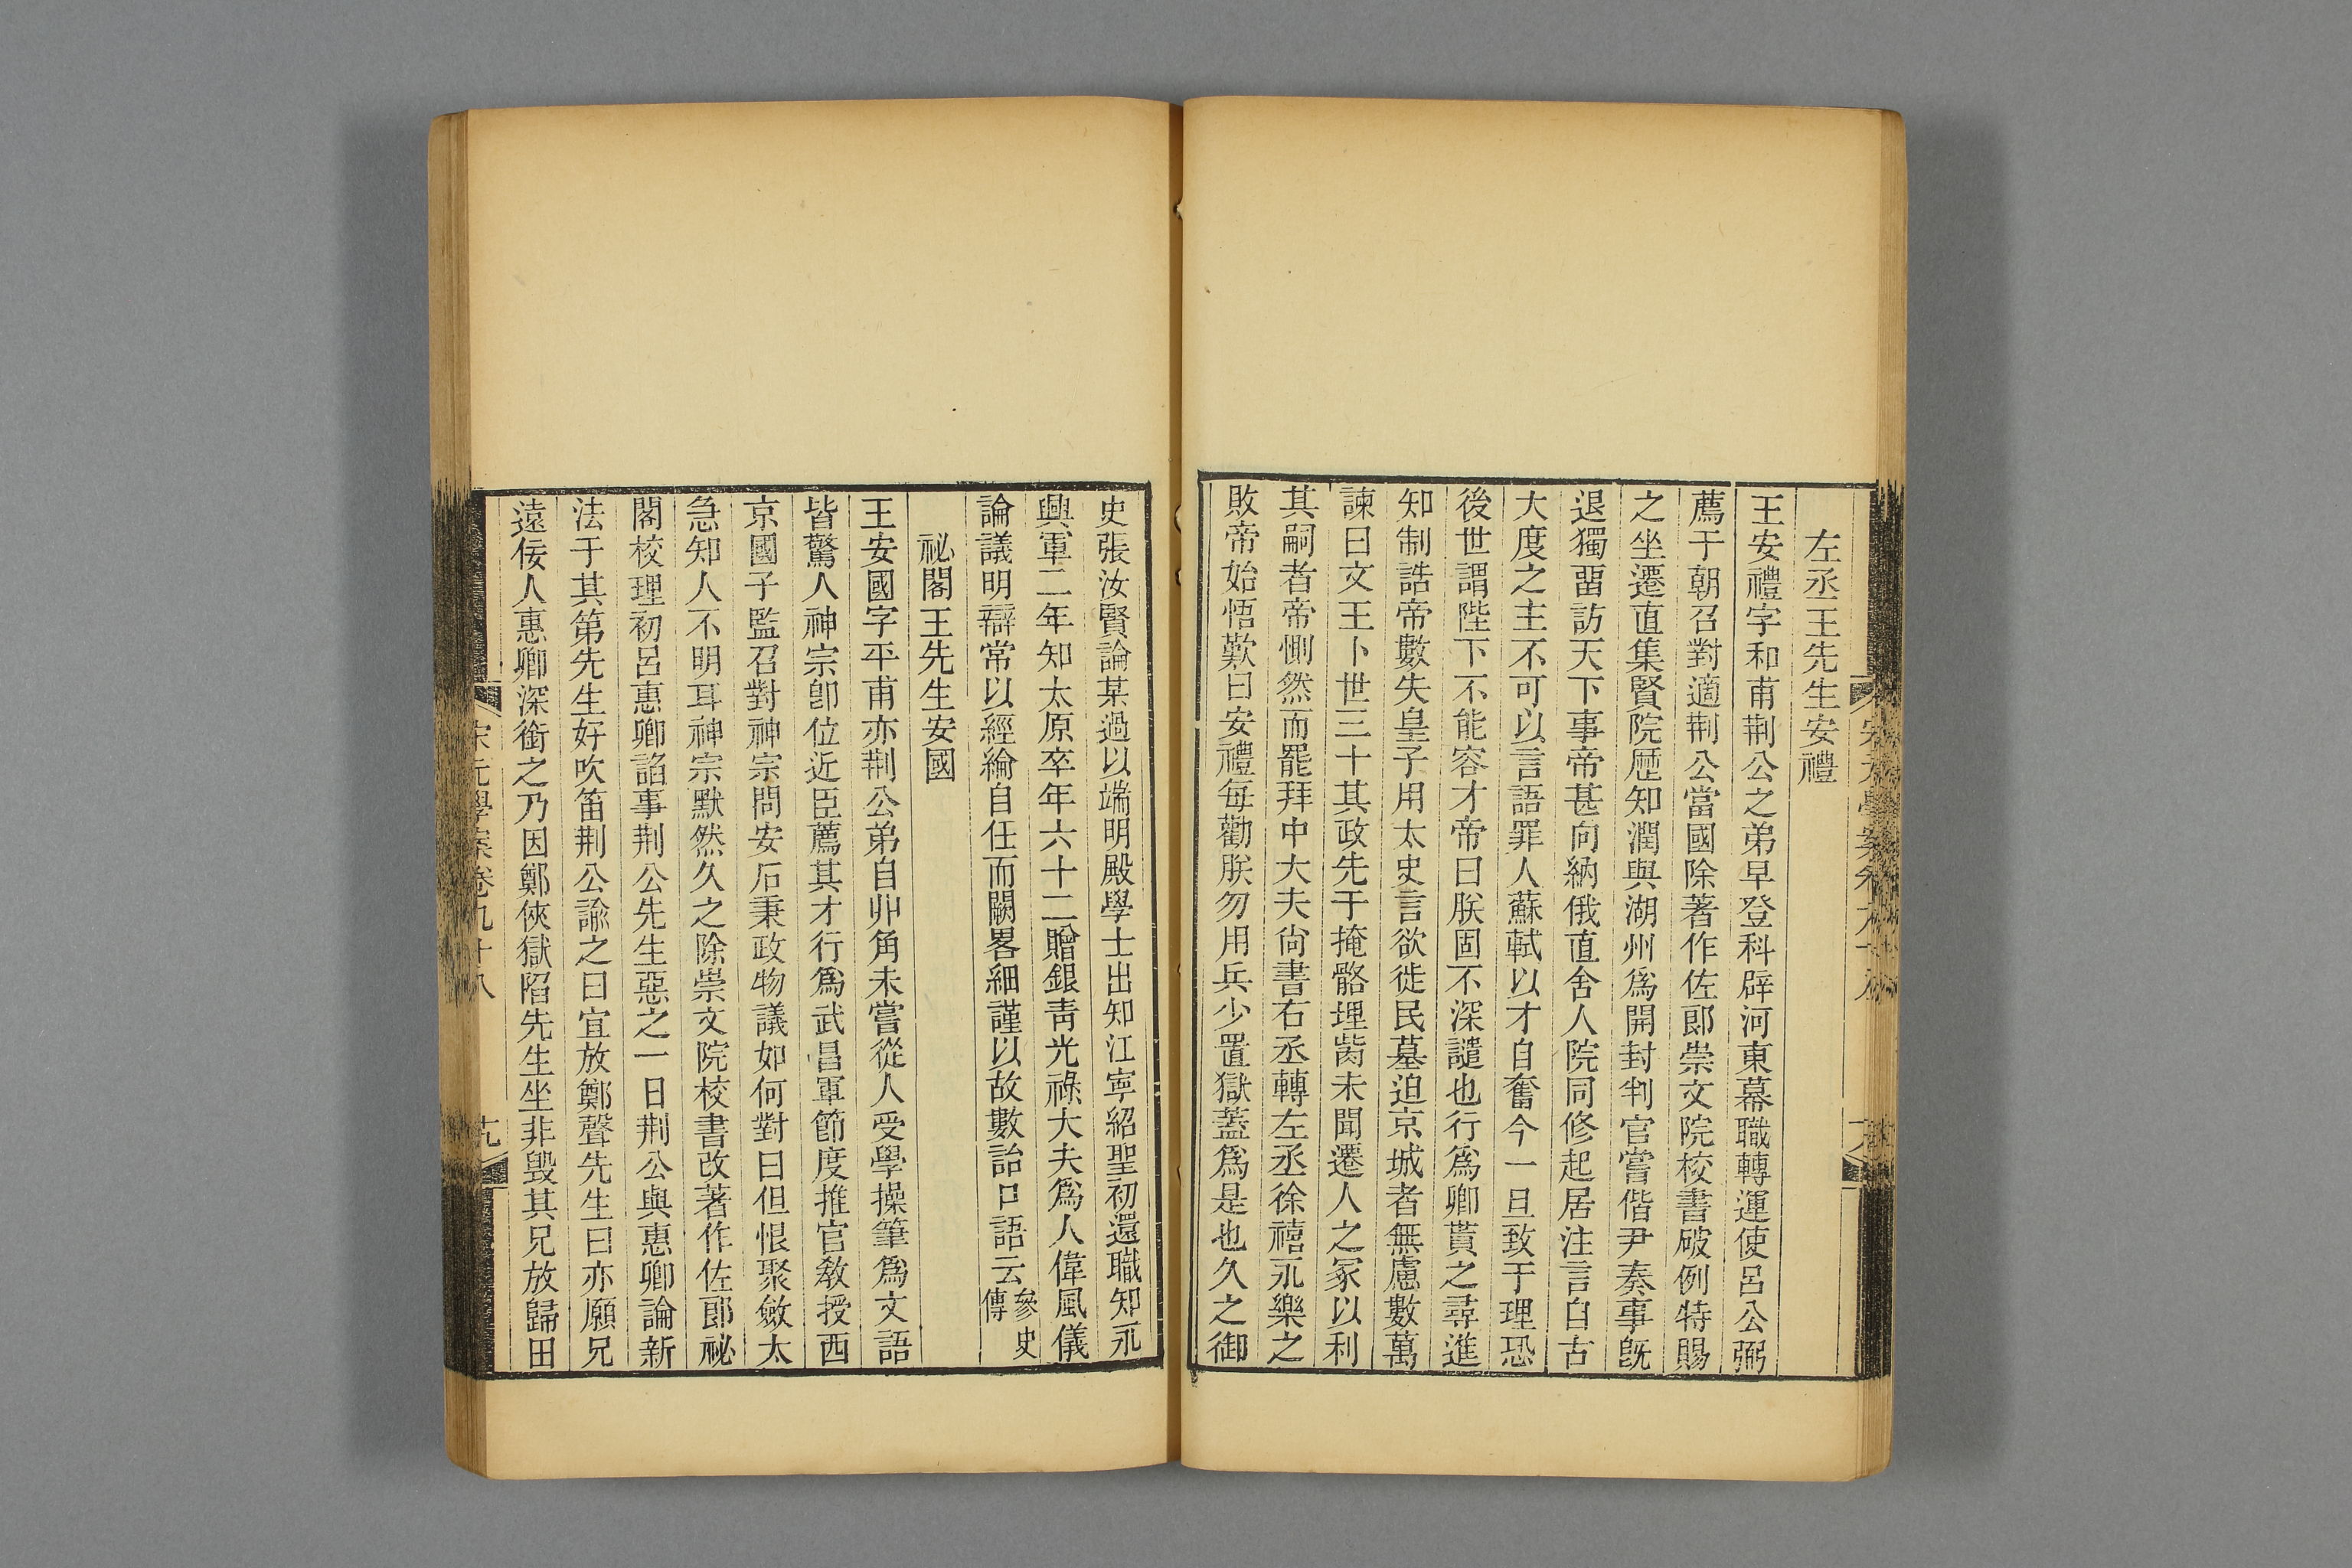 左丞王先生安禮
王安禮字和甫荆公之弟早登科辟河東幕職轉運使呂公弼
薦于朝召對適荆公當國除著作佐郞崇文院校書破例特賜
之坐遷直集賢院歷知潤與湖州爲開封判官嘗偕尹奏事旣
退獨畱訪天下事帝甚向納俄直舍人院同修起居注言自古
大度之主不可以言語罪人蘇軾以才自奮今一旦致于理恐
後世謂陛下不能容才帝曰朕固不深譴也行爲卿貰之尋進
知制誥帝數失皇子用太史言欲徙民墓迫京城者無慮數萬
諫曰文王卜世三十其政先于掩骼埋胔未聞遷人之冢以利
其嗣者帝惻然而罷拜中大夫尙書右丞轉左丞徐禧永樂之
敗帝始悟歎曰安禮每勸朕勿用兵少置獄蓋爲是也久之御
史張汝賢論某過以端明殿學士出知江寧紹聖初還職知永
興軍二年知太原卒年六十二贈銀靑光祿大夫爲人偉風儀
論議明辯常以經綸自任而闕畧細謹以故數詒口語云參史傳
祕閣王先生安國
王安國字平甫亦荆公弟自丱角未嘗從人受學操筆爲文語
皆驚人神宗卽位近臣薦其才行爲武昌軍節度推官敎授西
京國子監召對神宗問安石秉政物議如何對曰但恨聚斂太
急知人不明耳神宗默然久之除崇文院校書改著作佐郞祕
閣校理初呂惠卿諂事荆公先生惡之一日荆公與惠卿論新
法于其第先生好吹笛荆公諭之曰宜放鄭聲先生曰亦願兄
遠佞人惠卿深銜之乃因鄭俠獄陷先生坐非毀其兄放歸田
宋元學案卷九十八
十九